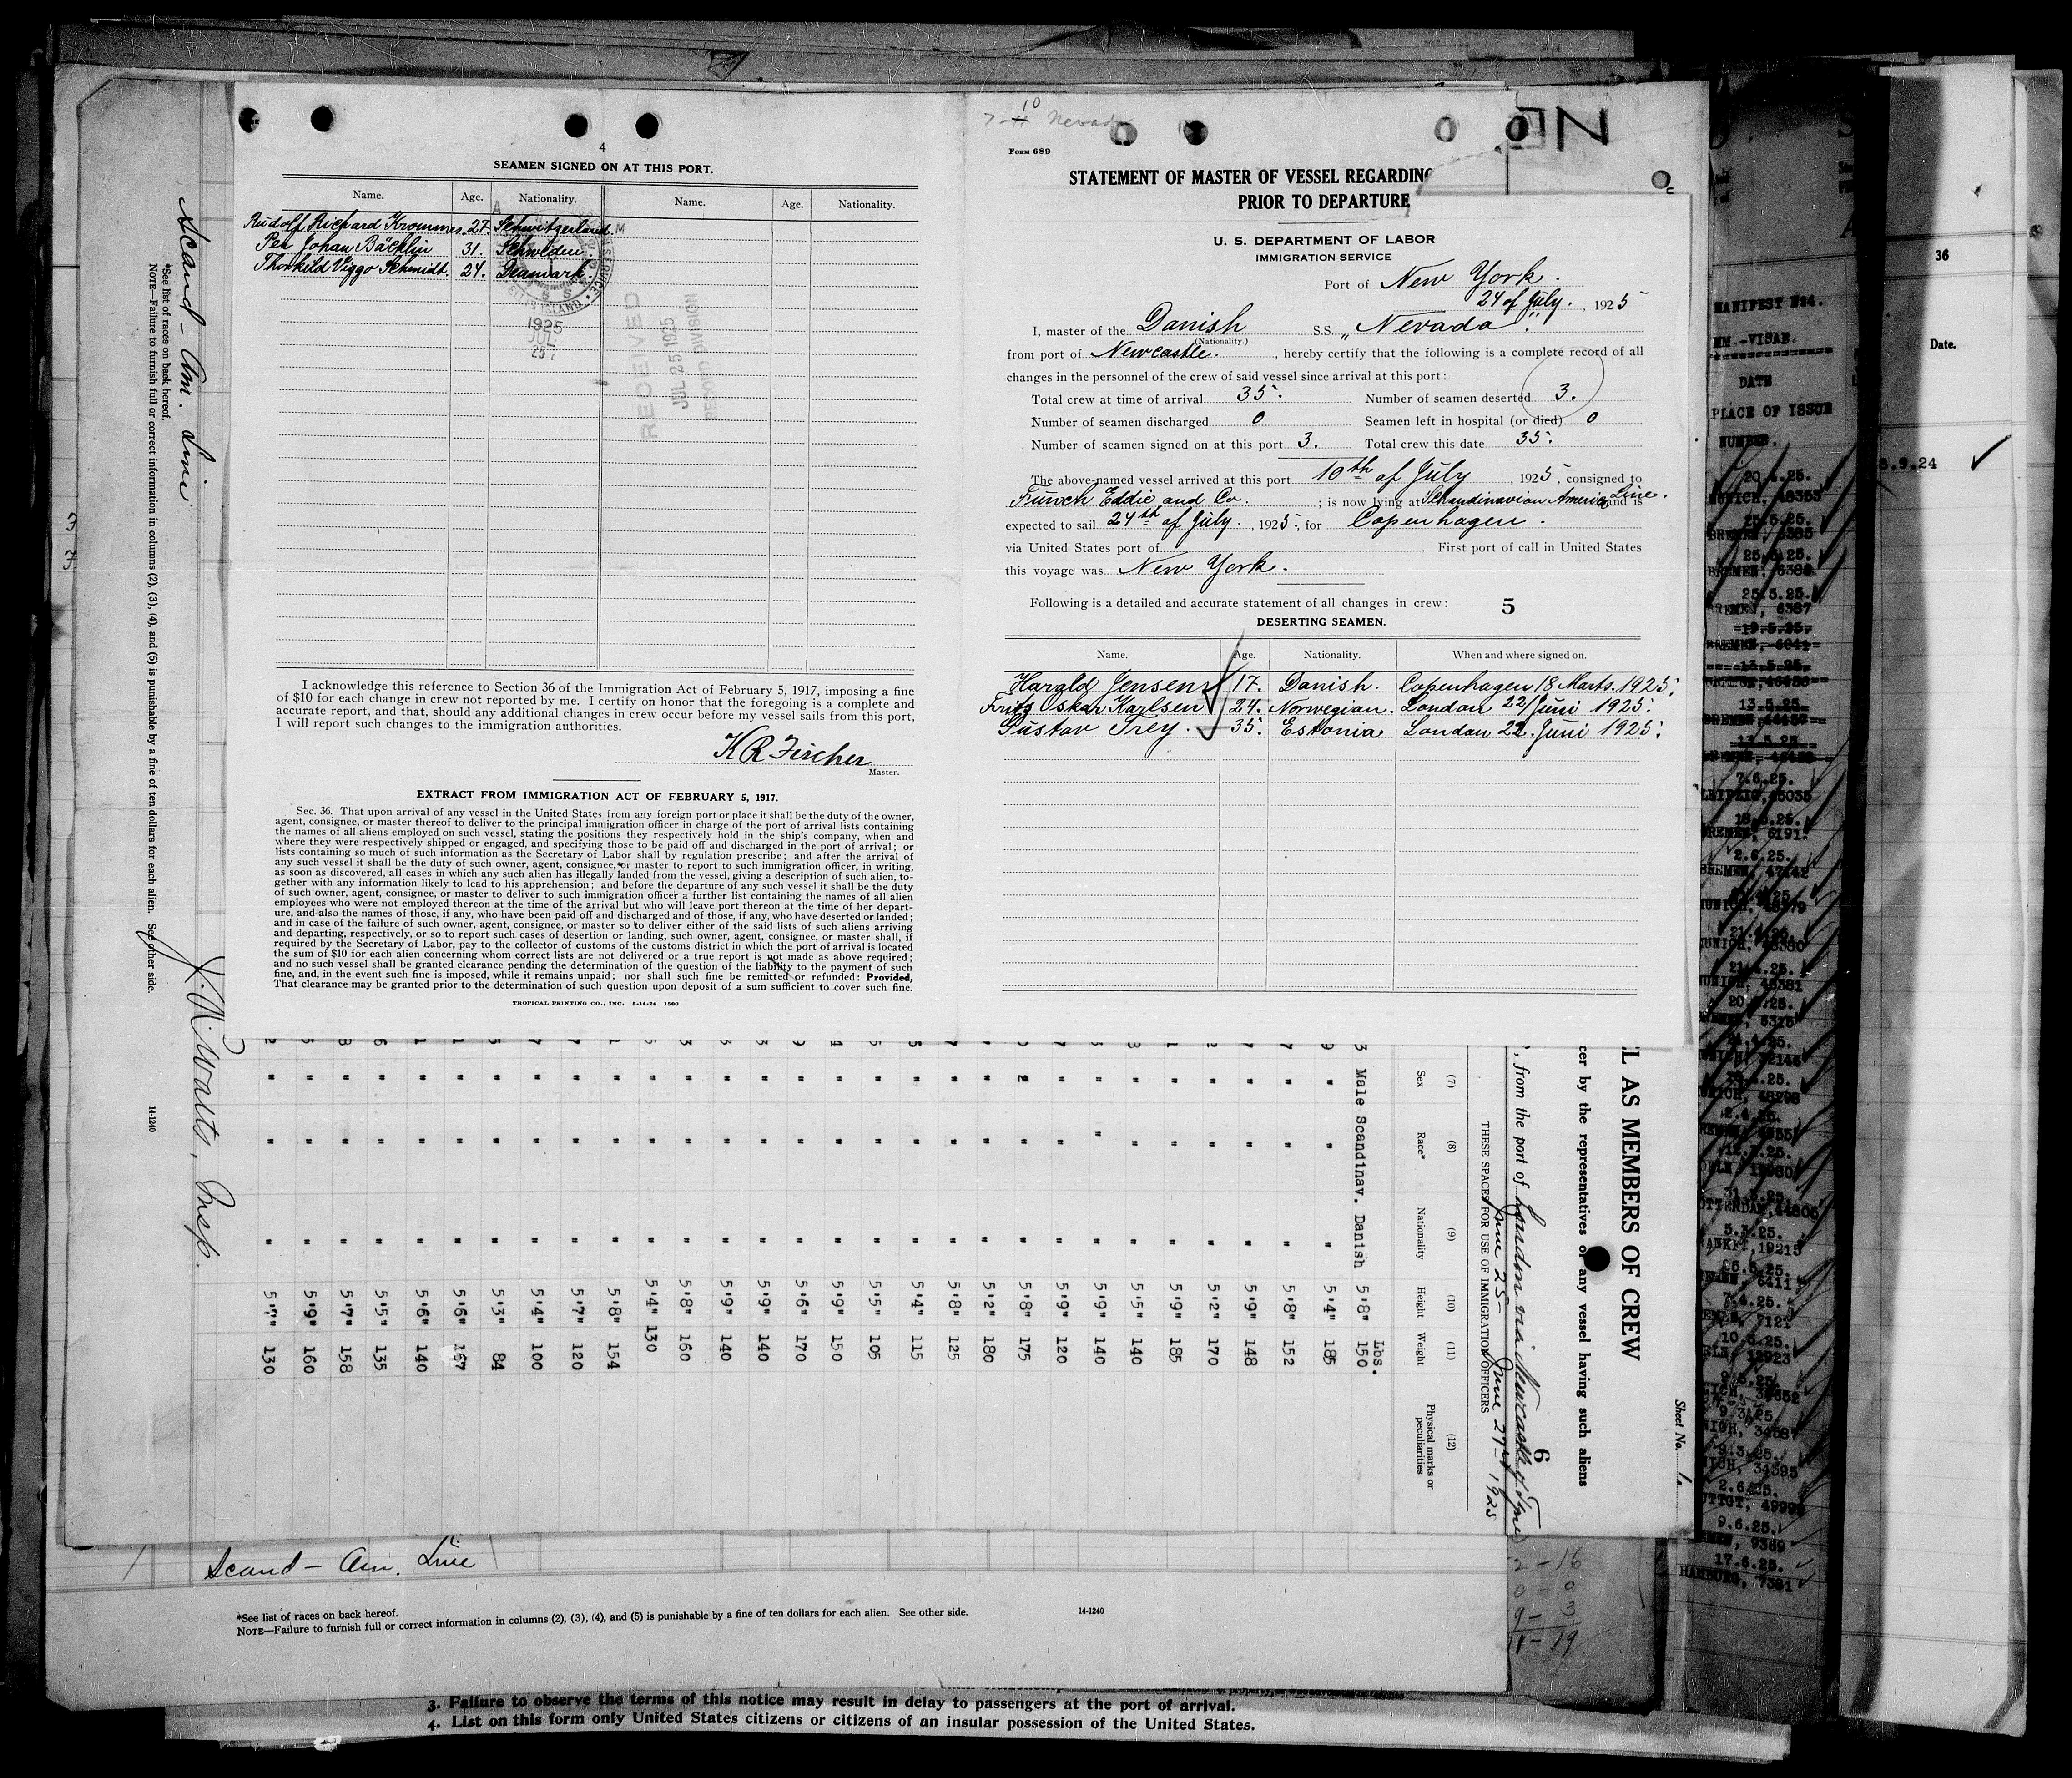 4
SEAMEN SIGNED ON AT THIS PORT.
Name. Age. Nationality. Name. Age. Nationality.
Rudolf Richard Krommes. 27. Schwitzerland.
Per Johan Bäcklin 31. Schweden.
Thorkild Viggo Schmidt. 24. Denmark.
ELLIS ISLAND
1925
JUL
25
RECEIVED
JUL 25 1925
RECORD DIVISION
I acknowledge this reference to Section 36 of the Immigration Act of February 5, 1917, imposing a fine
of $10 for each change in crew not reported by me. I certify on honor that the foregoing is a complete and
accurate report, and that, should any additional changes in crew occur before my vessel sails from this port,
I will report such changes to the immigration authorities.
K R Fischer
Master.
EXTRACT FROM IMMIGRATION ACT OF FEBRUARY 5, 1917.
Sec. 36. That upon arrival of any vessel in the United States from any foreign port or place it shall be the duty of the owner,
agent, consignee, or master thereof to deliver to the principal immigration officer in charge of the port of arrival lists containing
the names of all aliens employed on such vessel, stating the positions they respectively hold in the ship's company, when and
where they were respectively shipped or engaged, and specifying those to be paid off and discharged in the port of arrival; or
lists containing so much of such information as the Secretary of Labor shall by regulation prescribe; and after the arrival of
any such vessel it shall be the duty of such owner, agent, consignee, or master to report to such immigration officer, in writing,
as soon as discovered, all cases in which any such alien has illegally landed from the vessel, giving a description of such alien, to-
gether with any information likely to lead to his apprehension; and before the departure of any such vessel it shall be the duty
of such owner, agent, consignee, or master to deliver to such immigration officer a further list containing the names of all alien
employees who were not employed thereon at the time of the arrival but who will leave port thereon at the time of her depart-
ure, and also the names of those, if any, who have been paid off and discharged and of those, if any, who have deserted or landed;
and in case of the failure of such owner, agent, consignee, or master so to deliver either of the said lists of such aliens arriving
and departing, respectively, or so to report such cases of desertion or landing, such owner, agent, consignee, or master shall, if
required by the Secretary of Labor, pay to the collector of customs of the customs district in which the port of arrival is located
the sum of $10 for each alien concerning whom correct lists are not delivered or a true report is not made as above required;
and no such vessel shall be granted clearance pending the determination of the question of the liability to the payment of such
fine, and, in the event such fine is imposed, while it remains unpaid; nor shall such fine be remitted or refunded: Provided,
That clearance may be granted prior to the determination of such question upon deposit of a sum sufficient to cover such fine.
TROPICAL PRINTING CO., INC. 5-14-24 1500
10
7-11 Nevada
Form 689
STATEMENT OF MASTER OF VESSEL REGARDING
PRIOR TO DEPARTURE
U. S. DEPARTMENT OF LABOR
IMMIGRATION SERVICE
Port of New York.
24 of July. , 1925
I, master of the Danish S.S. „Nevada".
(Nationality.)
from port of Newcastle. , hereby certify that the following is a complete record of all
changes in the personnel of the crew of said vessel since arrival at this port:
Total crew at time of arrival 35. Number of seamen deserted 3.
Number of seamen discharged 0 Seamen left in hospital (or died) 0
Number of seamen signed on at this port 3. Total crew this date 35.
The above-named vessel arrived at this port 10th of July , 1925, consigned to
Funch Eddie and Co. ; is now lying at Skandinavian America Line. and is
expected to sail 24th of July. , 1925, for Copenhagen.
via United States port of First port of call in United States
this voyage was New York.
Following is a detailed and accurate statement of all changes in crew: 5
DESERTING SEAMEN.
Name. Age. Nationality. When and where signed on.
Harald Jensen 17. Danish. Copenhagen 18 Marts. 1925.
Frits Oskar Karlsen 24. Norwegian. London 22/Juni 1925.
Gustav Trey. 35. Estonia London 22. Juni 1925.
Scand-Am. Line
*See list of races on back hereof.
NOTE—Failure to furnish full or correct information in columns (2), (3), (4), and (5) is punishable by a fine of ten dollars for each alien. See other side.
14-1240
Watts, Insp.
L AS MEMBERS OF CREW
Sheet No. 1.
cer by the representatives of any vessel having such aliens
6
, from the port of London via Newcastle o/ Tyne
June 25- June 27- 1925
THESE SPACES FOR USE OF IMMIGRATION OFFICERS
(7) (8) (9) (10) (11) (12)
Sex Race* Nationality Height Weight Physical marks or peculiarities
Lbs.
3 Male Scandinav. Danish 5'8" 150
9 " " " 5'4" 185
" " " 5'8" 152
" " " 5'9" 148
" " " 5'2" 170
" " " 5'9" 185
" " " 5'5" 140
" " " 5'9" 140
" " " 5'9" 120
" " " 5'8" 175
" " " 5'2" 180
" " " 5'8" 125
" " " 5'4" 115
" " " 5'5" 105
" " " 5'9" 150
" " " 5'6" 170
" " " 5'9" 140
" " " 5'9" 140
" " " 5'8" 160
" " " 5'4" 130
" " " 5'8" 154
" " " 5'7" 120
" " " 5'4" 100
" " " 5'3" 84
" " " 5'6" 167
" " " 5'6" 140
" " " 5'5" 135
" " " 5'7" 158
" " " 5'9" 160
" " " 5'7" 130
Scand-Am. Line
*See list of races on back hereof.
NOTE—Failure to furnish full or correct information in columns (2), (3), (4), and (5) is punishable by a fine of ten dollars for each alien. See other side.
14-1240
2-16
0-0
9-3
11-19
3. Failure to observe the terms of this notice may result in delay to passengers at the port of arrival.
4. List on this form only United States citizens or citizens of an insular possession of the United States.
MANIFEST №24.
DATE
PLACE OF ISSUE
NUMBER.
20.4.25.
25.5.25.
25.5.25.
25.5.25.
13.5.25.
7.6.25.
LEIPZIG,
2.6.25.
9.6.25.
17.6.25.
HAMBURG, 7381
36
Date.
8.9.24